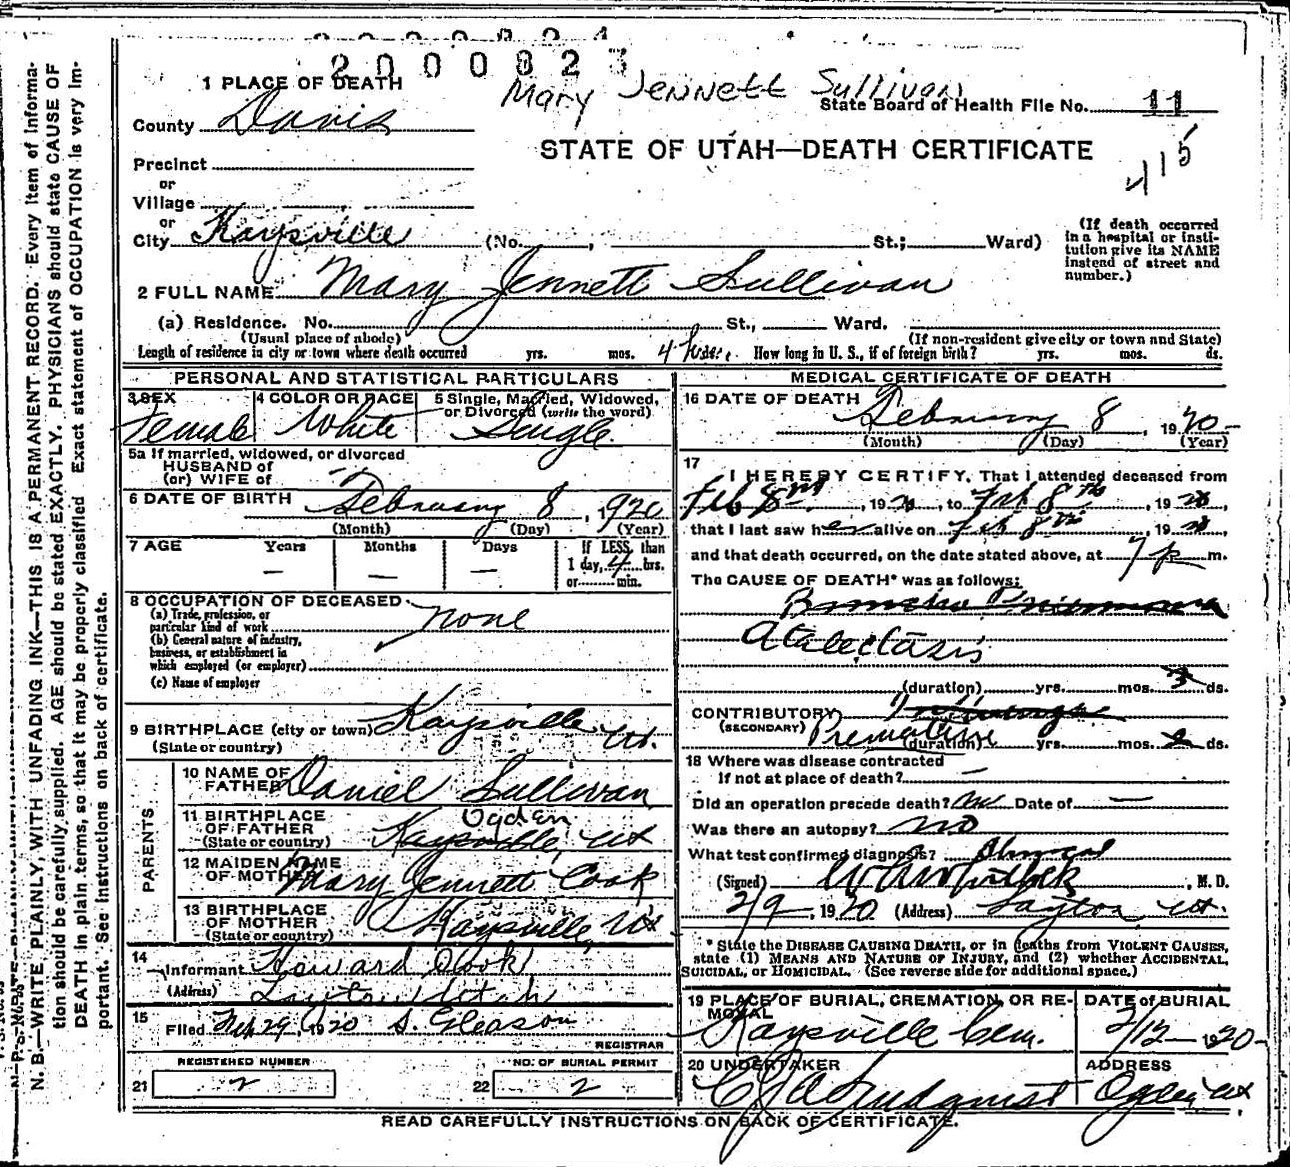 2000823
Mary Jennett Sullivan
State Board of Health File No. 11
STATE OF UTAH—DEATH CERTIFICATE
415
1 PLACE OF DEATH
County Davis
Precinct
or
Village
or
City Kaysville (No. , St.; Ward)
(If death occurred in a hospital or institution give its NAME instead of street and number.)
2 FULL NAME Mary Jennett Sullivan
(a) Residence. No. St., Ward.
(Usual place of abode) (If non-resident give city or town and State)
Length of residence in city or town where death occurred yrs. mos. 4 hours. How long in U. S., if of foreign birth? yrs. mos. ds.
PERSONAL AND STATISTICAL PARTICULARS
3 SEX Female
4 COLOR OR RACE White
5 Single, Married, Widowed, or Divorced (write the word) Single
5a If married, widowed, or divorced
HUSBAND of
(or) WIFE of —
6 DATE OF BIRTH February 8, 1920
(Month) (Day) (Year)
7 AGE Years — Months — Days — If LESS than 1 day, 4 hrs. or min.
8 OCCUPATION OF DECEASED none
(a) Trade, profession, or particular kind of work
(b) General nature of industry, business, or establishment in which employed (or employer)
(c) Name of employer
9 BIRTHPLACE (city or town) Kaysville Ut.
(State or country)
PARENTS
10 NAME OF FATHER Daniel Sullivan
11 BIRTHPLACE OF FATHER Ogden
(State or country) Kaysville, Ut
12 MAIDEN NAME OF MOTHER Mary Jennett Cook
13 BIRTHPLACE OF MOTHER Kaysville, Ut
(State or country)
14
Informant Howard Cook
(Address) Layton Utah
15 Filed 1920 S. Gleason
REGISTRAR
REGISTERED NUMBER
21 2
NO. OF BURIAL PERMIT
22 2
MEDICAL CERTIFICATE OF DEATH
16 DATE OF DEATH
February 8, 1920
(Month) (Day) (Year)
17
I HEREBY CERTIFY, That I attended deceased from
Feb 8th, 1920, to Feb 8th, 1920,
that I last saw her alive on Feb 8th, 1920,
and that death occurred, on the date stated above, at 7 p m.
The CAUSE OF DEATH* was as follows:
Broncho Pneumonia
Atalectasis
(duration) yrs. mos. 3 ds.
CONTRIBUTORY
(SECONDARY) Premature
(duration) yrs. mos. ds.
18 Where was disease contracted
If not at place of death? —
Did an operation precede death? Date of —
Was there an autopsy? no
What test confirmed diagnosis?
(Signed) , M. D.
2/9, 1920 (Address) Layton Ut.
* State the DISEASE CAUSING DEATH, or in deaths from VIOLENT CAUSES,
state (1) MEANS AND NATURE OF INJURY, and (2) whether ACCIDENTAL,
SUICIDAL, or HOMICIDAL. (See reverse side for additional space.)
19 PLACE OF BURIAL, CREMATION, OR REMOVAL Kaysville Cem.
DATE of BURIAL 2/12 1920
20 UNDERTAKER Lindquist
ADDRESS Ogden Ut
READ CAREFULLY INSTRUCTIONS ON BACK OF CERTIFICATE.
N. B.—WRITE PLAINLY, WITH UNFADING INK—THIS IS A PERMANENT RECORD. Every item of information should be carefully supplied. AGE should be stated EXACTLY. PHYSICIANS should state CAUSE OF DEATH in plain terms, so that it may be properly classified. Exact statement of OCCUPATION is very important. See instructions on back of certificate.